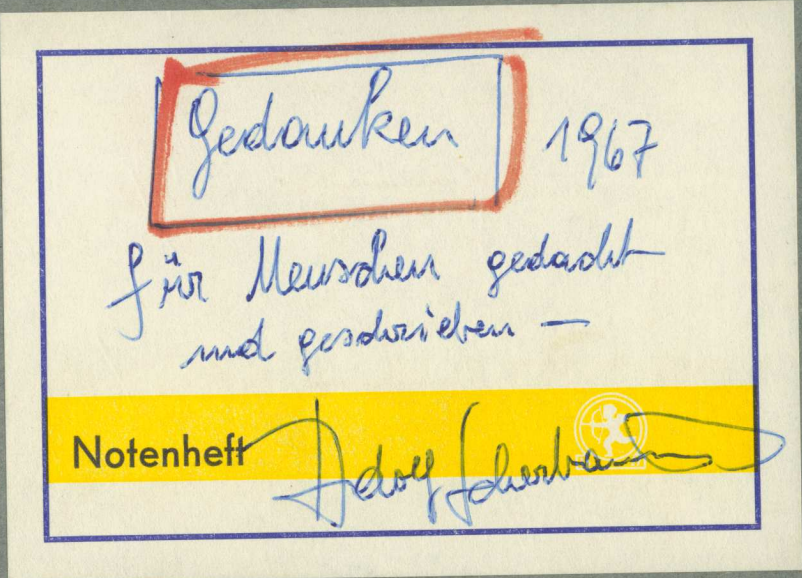 Gedanken 1967
für Menschen gedacht
und geschrieben —
Notenheft
Adolf Scherbaum